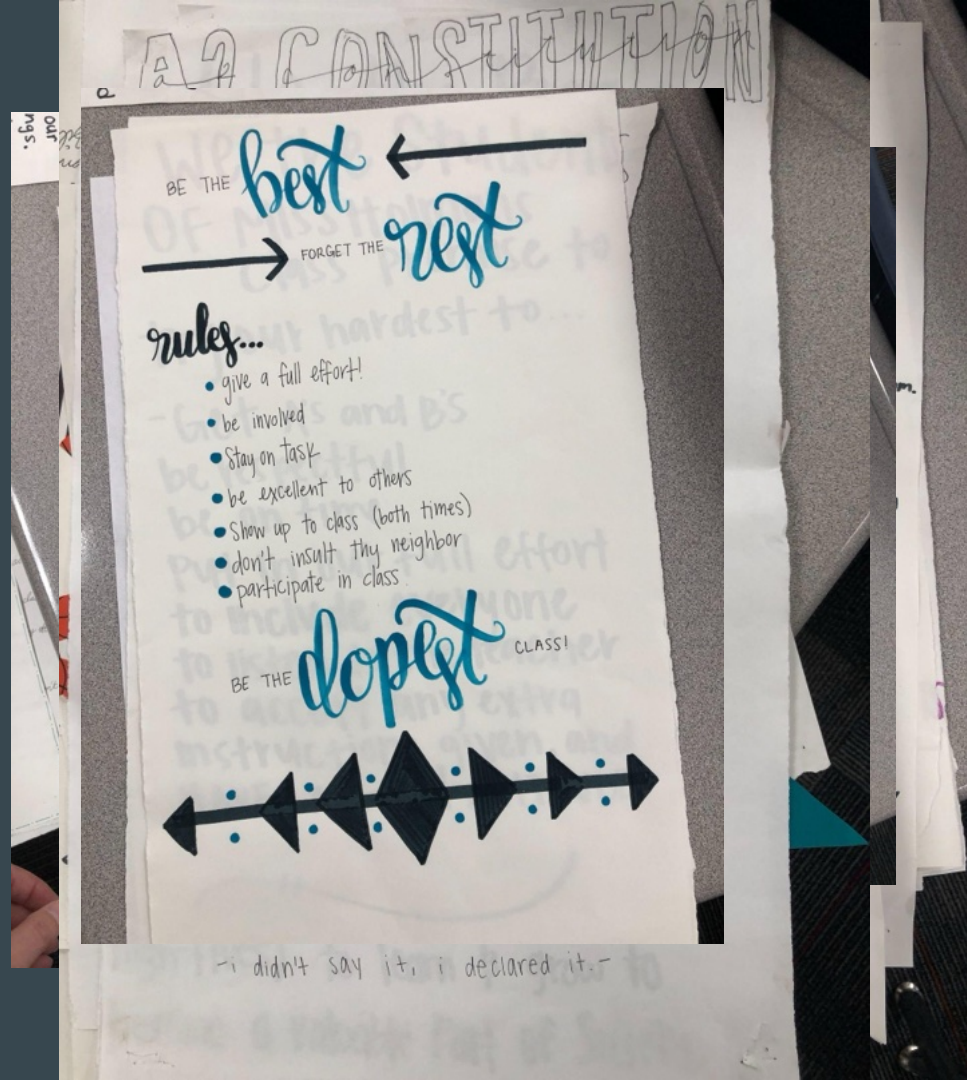 A2 CONSTITUTION
our
ngs.
BE THE best
FORGET THE rest
rules...
• give a full effort!
• be involved
• Stay on task
• be excellent to others
• Show up to class (both times)
• don't insult thy neighbor
• participate in class!
BE THE dopest CLASS!
-i didn't say it, i declared it.-